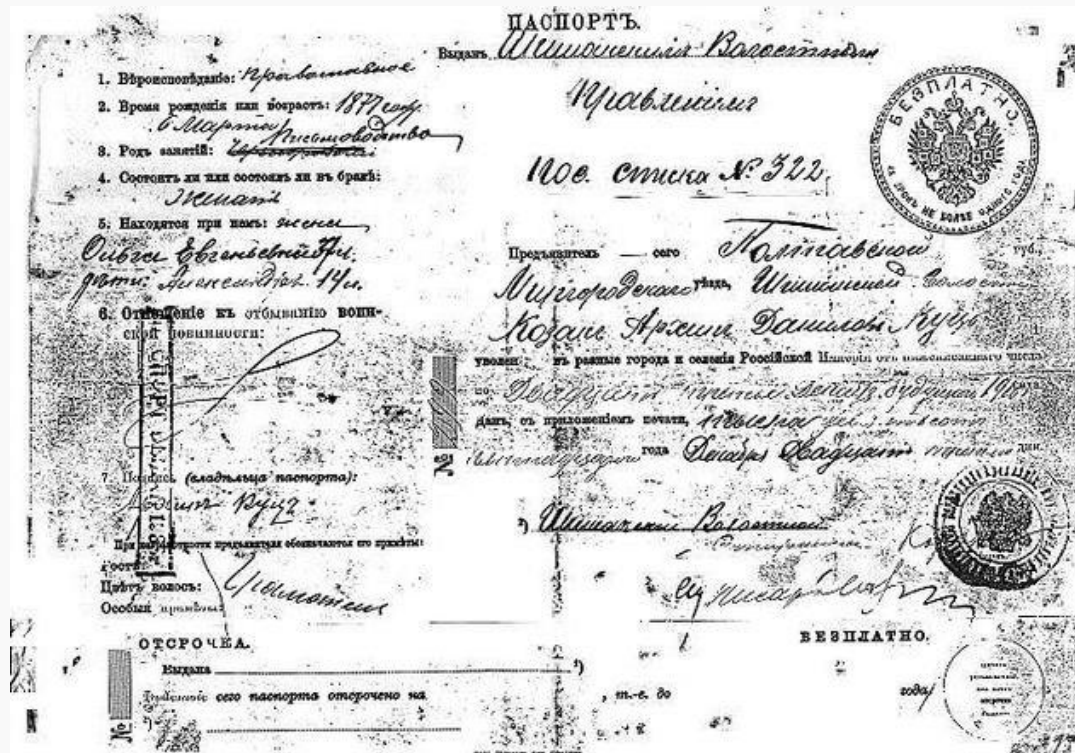 ПАСПОРТЪ.
Выданъ Шишацкимъ Волостнымъ
Правленіемъ
Пос. списка № 322.
БЕЗПЛАТНО.
НА СРОКЪ НЕ БОЛѢЕ ОДНОГО ГОДА
1. Вѣроисповѣданіе: Православное
2. Время рожденія или возрастъ: 1877 году
6 Марта
3. Родъ занятій: Письмоводство
4. Состоитъ ли или состоялъ ли въ бракѣ:
Женатъ
5. Находятся при немъ: жена
Ольга Евгеньевна
дѣти: Александръ 14 л.
6. Отношеніе къ отбыванію воинской повинности:
7. Подпись (владѣльца паспорта):
Куцъ
При неграмотности предъявителя обозначаются его примѣты:
Ростъ:
Цвѣтъ волосъ:
Особыя примѣты:
Грамотный
Предъявитель сего Полтавской губ.
Миргородскаго уѣзда, Шишацкой волости
Козакъ Архипъ Даниловъ Куцъ
уволенъ въ разные города и селенія Россійской Имперіи отъ нижеписаннаго числа
по Двадцать третье Декабря будущаго
Данъ, съ приложеніемъ печати, тысяча девятьсотъ
года Декабря Двадцать третьяго дня.
Шишацкій Волостной
Старшина
Писарь
№
ОТСРОЧКА.
БЕЗПЛАТНО.
Выдана
Дѣйствіе сего паспорта отсрочено на , т.-е. до года
№